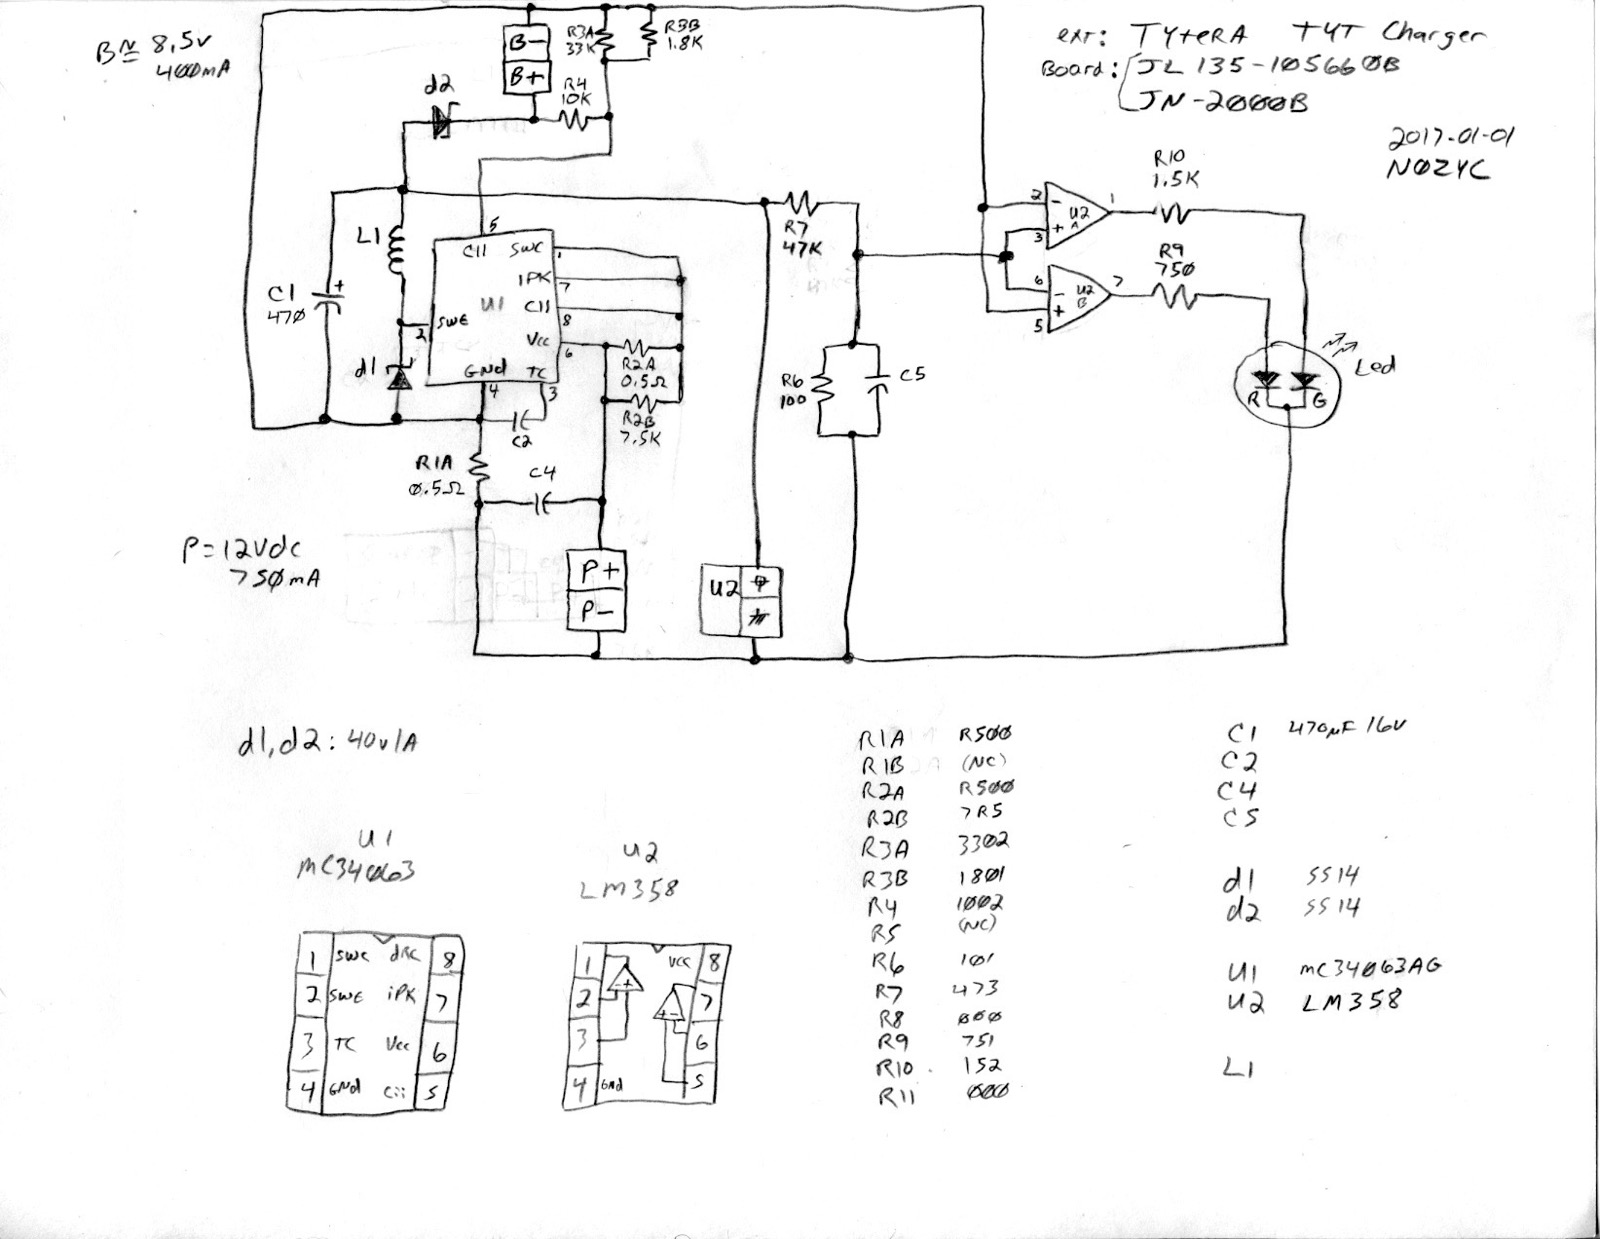 B≈ 8.5v
400mA
B-
B+
R3A
33K
R3B
1.8K
R4
10K
d2
ext: TYteRA TYT Charger
Board: JL135-105660B
JN-2000B
2017-01-01
N0ZYC
R10
1.5K
2 -
3 +
U2
A
1
R7
47K
R9
750
6 -
5 +
U2
B
7
L1
5
CII SWC 1
IPK 7
U1 CII 8
2 SWE
Vcc 6
GNd TC
4 3
C1
470
+
d1
R2A
0.5Ω
R2B
7.5K
C2
R6
100
C5
Led
R G
R1A
0.5Ω
C4
P=12Vdc
750mA
P+
P-
U2 +
d1,d2: 40v1A
R1A R500
R1B (NC)
R2A R500
R2B 7R5
R3A 3302
R3B 1801
R4 1002
R5 (NC)
R6 101
R7 473
R8 000
R9 751
R10 152
R11 000
C1 470µF 16V
C2
C4
C5
d1 SS14
d2 SS14
U1 MC34063AG
U2 LM358
L1
U1
MC34063
1 SWC dRC 8
2 SWE iPK 7
3 TC Vcc 6
4 GNd Cii 5
U2
LM358
1 VCC 8
2 - + 7
3 + - 6
4 GNd 5